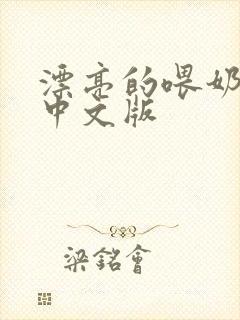 漂亮的喂奶
中文版
梁銘會